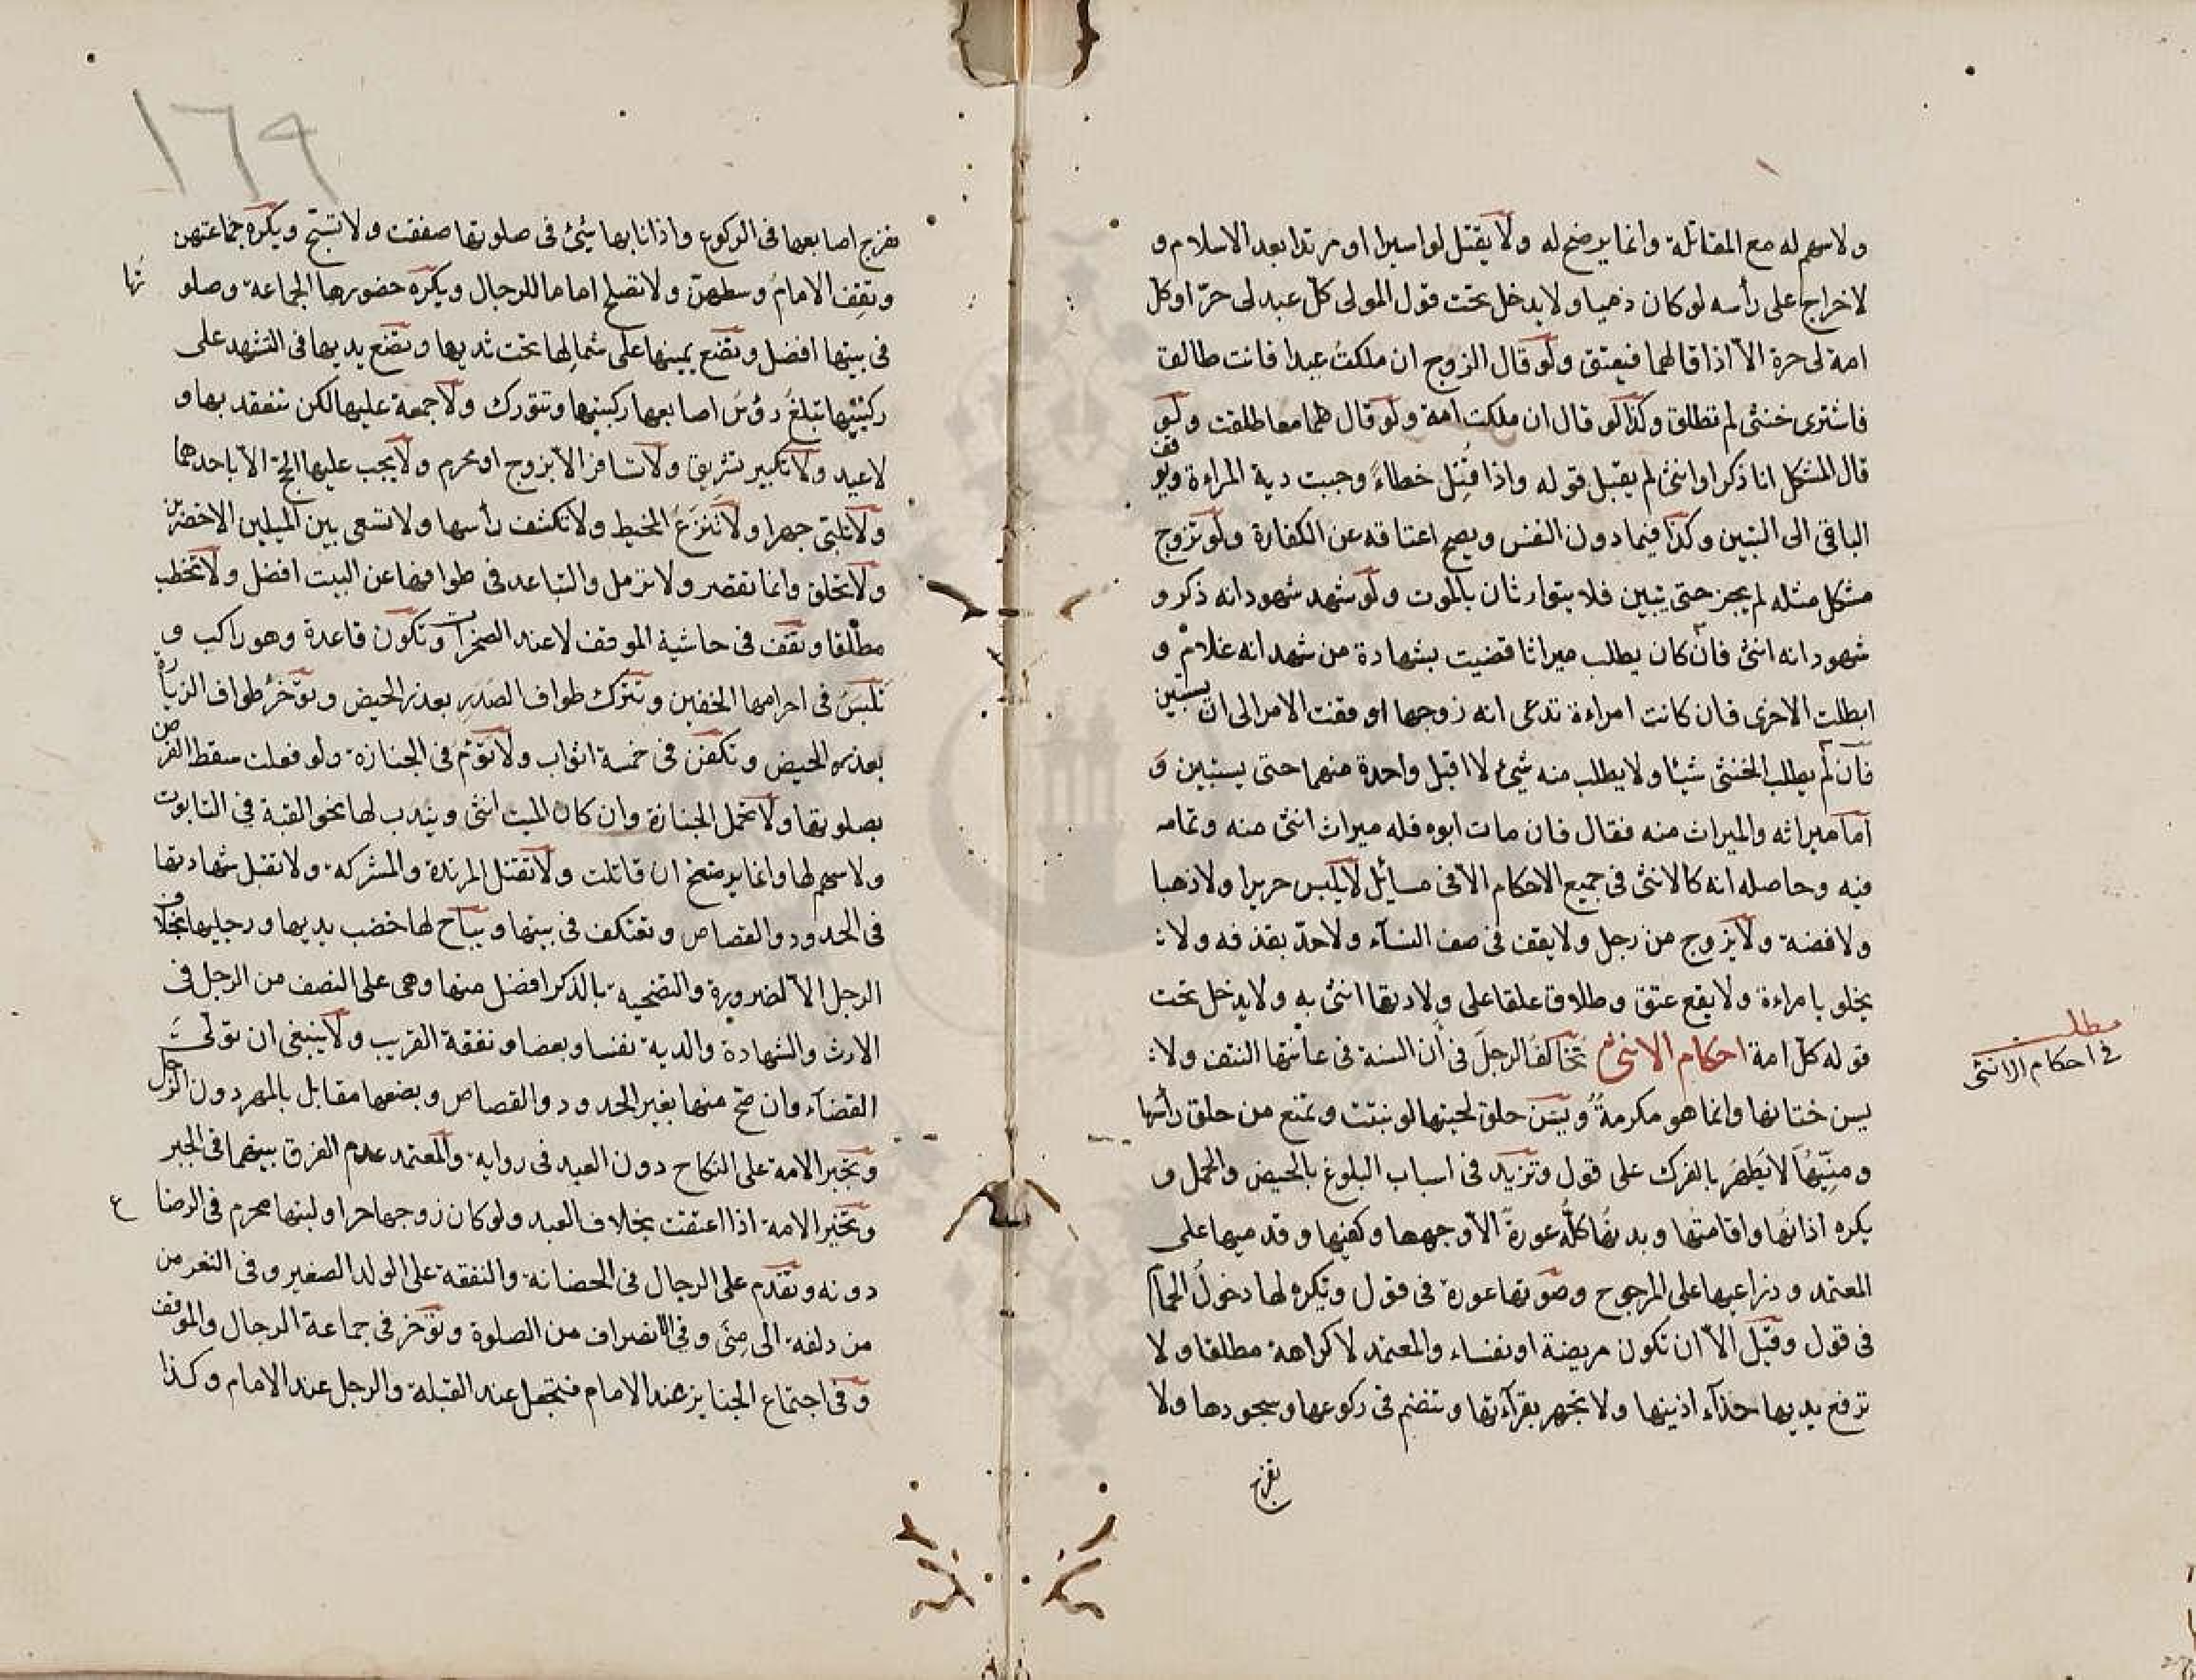 ولاسهم له مع المقاتلة وانما يرضخ له ولا يقتل لو اسيرا او مرتدا بعد الاسلام و
لا خراج على رأسه لو كان ذميا ولا يدخل تحت قول المولى كل عبد لى حرّ او كل
امة لى حرة الّا اذا قالهما فيعتق ولو قال الزوج ان ملكتُ عبدا فانت طالق
فاشترى خنثى لم تطلق وكذا لو قال ان ملكت امة ولو قال لهما معا طلقت ولو
قال المشكل انا ذكر او انثى لم يقبل قوله واذا قُتِل خطاءً وجبت دية المراءة ويوقف
الباقى الى التبين وكذا فيما دون النفس ويصح اعتاقه عن الكفارة ولو تزوج
مشكل مثله لم يجز حتى يتبين فلا يتوارثان بالموت ولو شهد شهود انه ذكر و
شهود انه انثى فان كان يطلب ميراثا قضيت بشهادة من شهد انه غلام و
ابطلت الاخرى فان كانت امراءة تدعى انه زوجها اوقفت الامر الى ان يستبين
فان لم يطلب الخنثى شيئا ولا يطلب منه شئ لا اقبل واحدة منهما حتى يستبين وَ
اما ميراثه والميراث منه فقال فان مات ابوه فله ميراث انثى منه وتمامه
فيه وحاصله انه كالانثى فى جميع الاحكام الّا فى مسائل لا يلبس حريرا ولا ذهبا
ولا فضة ولا يزوج من رجل ولا يقف فى صف النسآء ولا حدّ بقذفه ولا
يخلو بامراءة ولا يقع عتق وطلاق علقا على ولادتها انثى به ولا يدخل تحت
قوله كل امة احكام الانثى تخالف الرجل فى أن السنة فى عانتها النتف ولا
يسن ختانها وانما هو مكرمة ويسن حلق لحيتها لو نبتت وتمنع من حلق رأسها
ومنيّها لا يطهر بالفرك على قول وتزيد فى اسباب البلوغ بالحيض والحمل و
يكره اذانها واقامتها وبدنها كله عورة الّا وجهها وكفيها وقدميها على
المعتمد وذراعيها على المرجوح وصوتها عورة فى قول ويكره لها دخول الحمام
فى قول وقيل الّا ان تكون مريضة او نفساء والمعتمد لا كراهة مطلقا ولا
ترفع يديها حذآء اذنيها ولا تجهر بقرآءتها وتنضم فى ركوعها وسجودها ولا
تفرج
مطلب
فى احكام الانثى
١٦٩
تفرج اصابعها فى الركوع واذا نابها شئ فى صلوتها صفقت ولا تسبّح ويكره جماعتهن
وتقف الامام وسطهنّ ولا تصلح اماما للرجال ويكره حضورها الجماعة وصلوتها
فى بيتها افضل وتضع يمينها على شمالها تحت ثديها وتضع يديها فى التشهد على
ركبتيها تبلغ رؤس اصابعها ركبتيها وتتورك ولا جمعة عليها لكن تنعقد بها و
لا عيد ولا تكبير تشريق ولا تسافر الّا بزوج او محرم ولا يجب عليها الحج الّا باحدهما
ولا تلبّى جهرا ولا تنزع المخيط ولا تكشف رأسها ولا تسعى بين الميلين الاخضرين
ولا تحلق وانما تقصر ولا ترمل والتباعد فى طوافها عن البيت افضل ولا تخطب
مطلقا وتقف فى حاشية الموقف لا عند الصخرات وتكون قاعدة وهو راكب و
تلبس فى احرامها الخفين وتترك طواف الصدر بعذر الحيض وتؤخر طواف الزيارة
بعذر الحيض وتكفن فى خمسة اثواب ولا تؤم فى الجنازة ولو فعلت سقط الفرض
بصلوتها ولا تحمل الجنازة وان كان الميت انثى ويندب لها نحو القبة فى التابوت
ولا سهم لها وانما يرضخ ان قاتلت ولا تقتل المرتدة والمشركة ولا تقبل شهادتها
فى الحدود والقصاص وتعتكف فى بيتها ويباح لها خضب يديها ورجليها بخلاف
الرجل الّا لضرورة والتضحية بالذكر افضل منها وهى على النصف من الرجل فى
الارث والشهادة والدية نفسا وبعضا ونفقة القريب ولا ينبغى ان تولّى
القضآء وان صح منها بغير الحدود والقصاص وبضعها مقابل بالمهر دون الرجل
وتجبر الامة على النكاح دون العبد فى رواية والمعتمد عدم الفرق بينهما فى الجبر
وتخير الامة اذا اعتقت بخلاف العبد ولو كان زوجها حرا ولبنها محرم فى الرضاع
دونه وتقدم على الرجال فى الحضانة والنفقة على الولد الصغير وفى النفر من
مزدلفة الى منى وفى الانصراف من الصلوة وتؤخر فى جماعة الرجال والموقف
وفى اجتماع الجنايز عند الامام فتجعل عند القبلة والرجل عند الامام وكذا